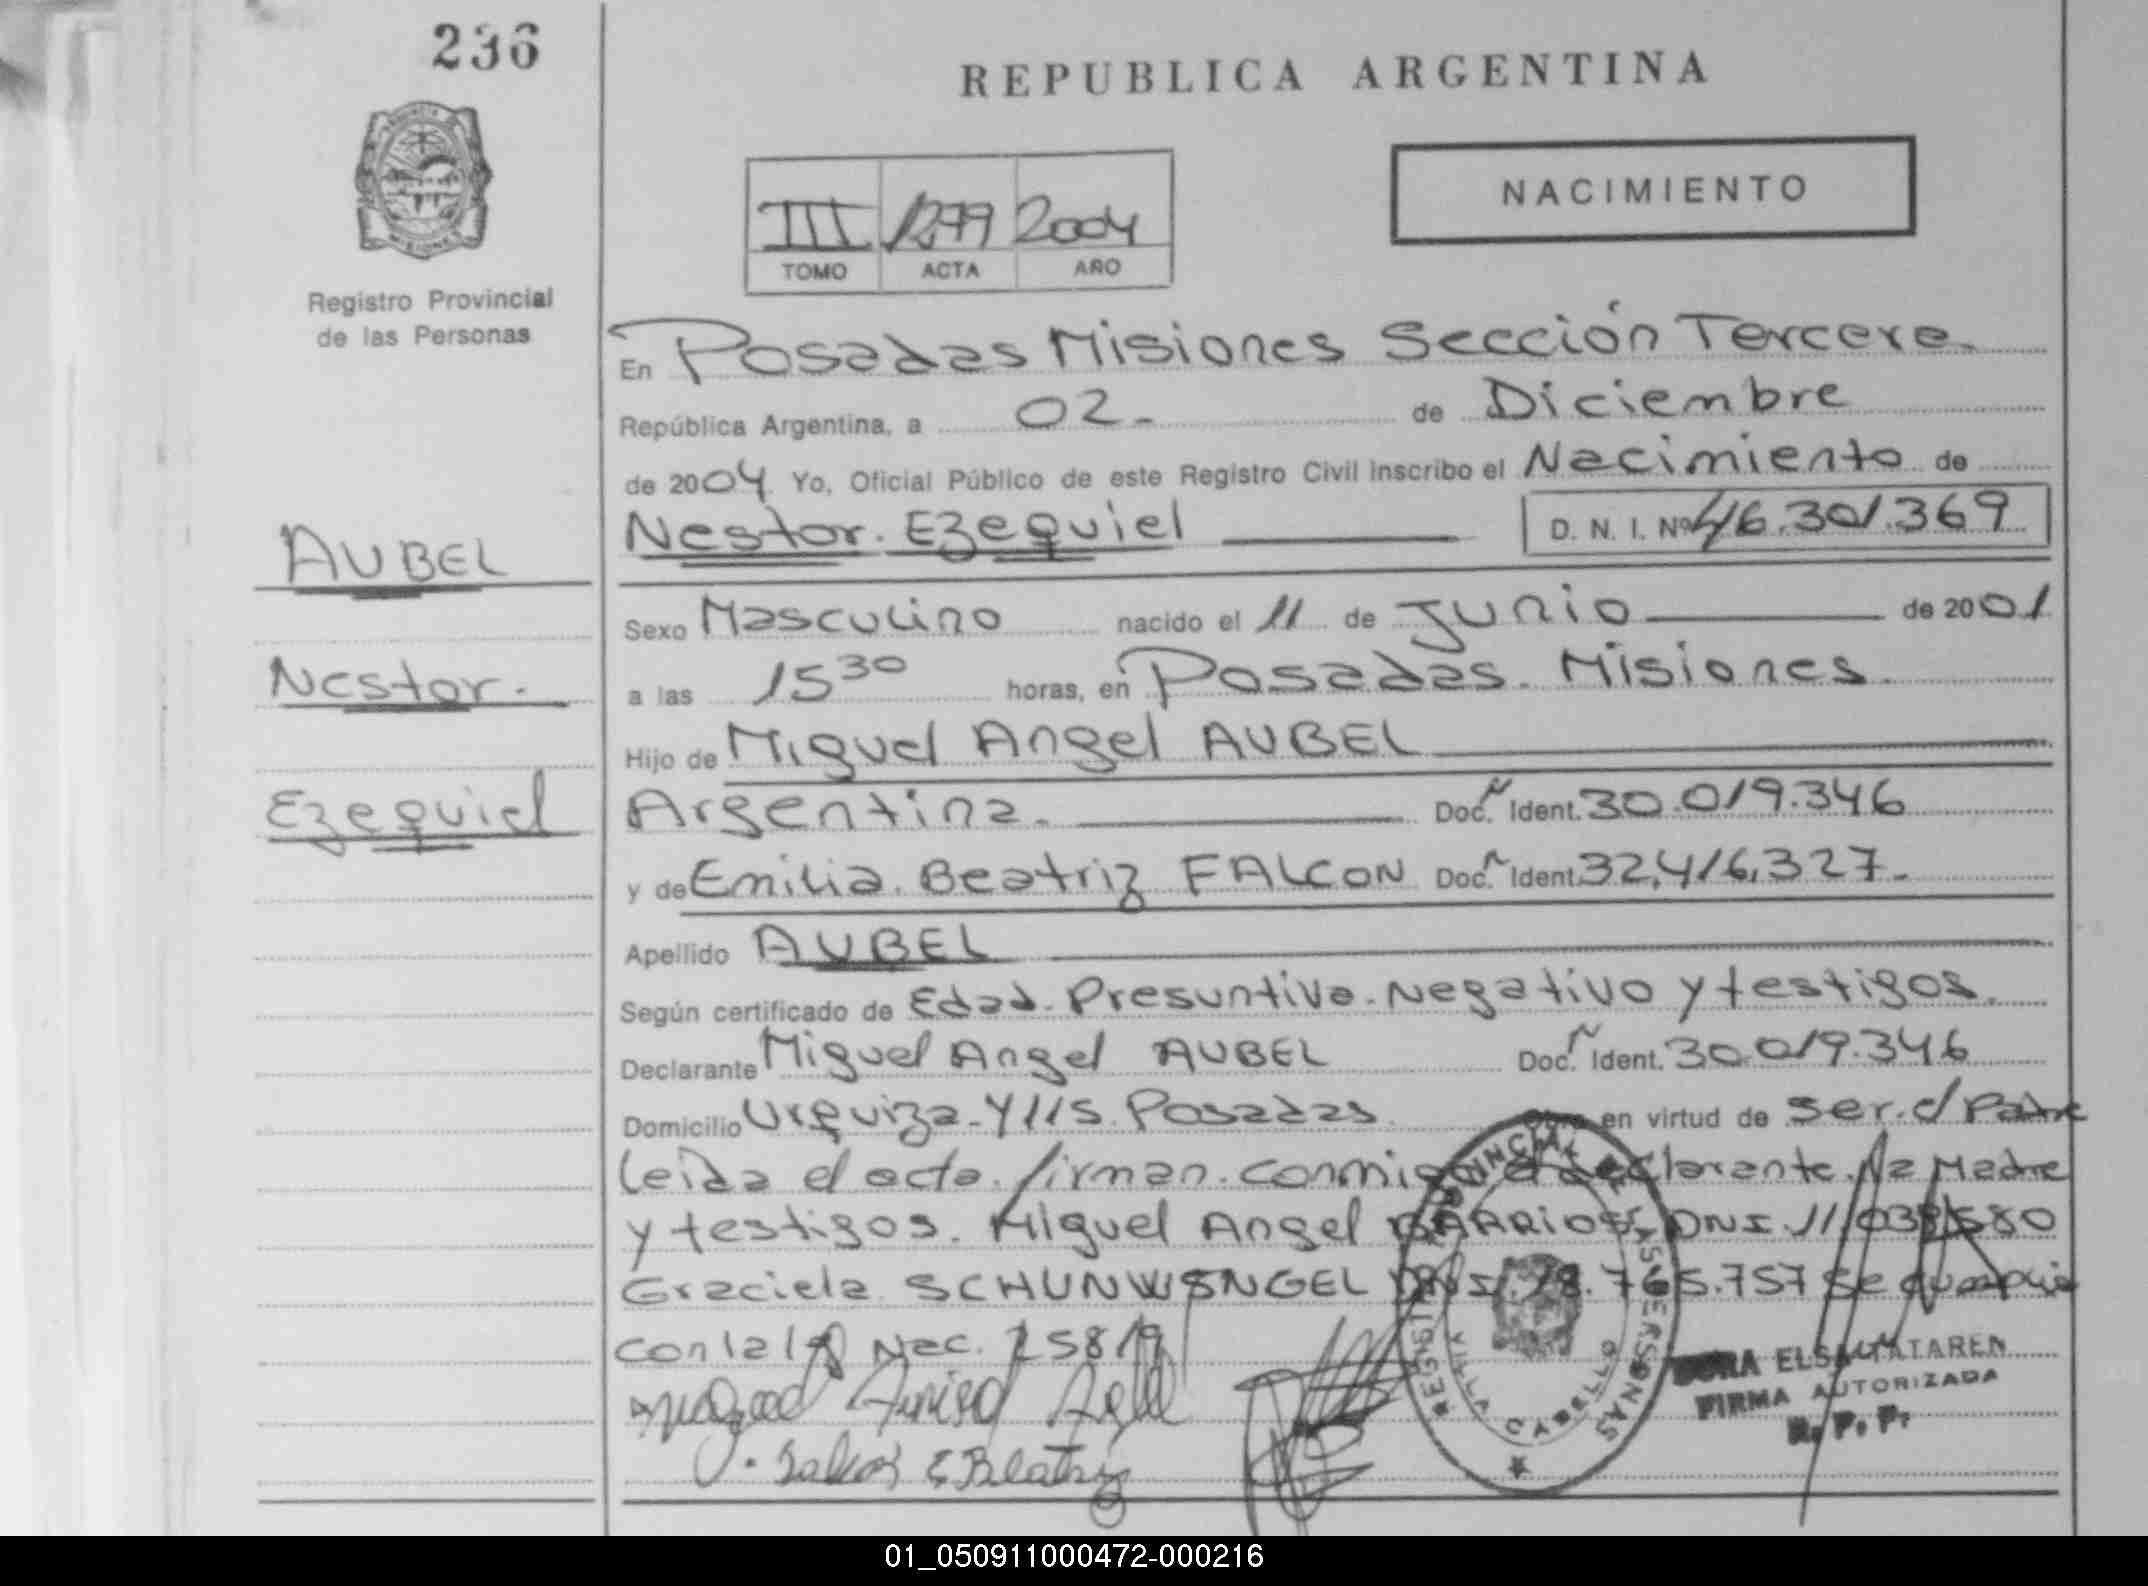 236
REPUBLICA ARGENTINA
NACIMIENTO
III 1279 2004
TOMO ACTA AÑO
Registro Provincial
de las Personas
En Posadas Misiones Sección Tercera
República Argentina, a 02 - de Diciembre
de 2004 Yo, Oficial Público de este Registro Civil inscribo el Nacimiento de
Nestor. Ezequiel D. N. I. Nº 46.301.369
AUBEL
Nestor.
Ezequiel
Sexo Masculino nacido el 11 de Junio de 2001
a las 15 30 horas, en Posadas. Misiones.
Hijo de Miguel Angel AUBEL
Argentina. Doc. Ident. 30.019.346
y de Emilia. Beatriz FALCON Doc. Ident. 32,416,327.-
Apellido AUBEL
Según certificado de Edad. Presuntiva. Negativo y testigos.
Declarante Miguel Angel AUBEL Doc. Ident. 30.019.346
Domicilio Urquiza. y 115. Posadas. Obra en virtud de ser. el Padre
Leida el acta. firman. conmigo el declarante. la Madre
y testigos. Miguel Angel BARRIOS. DNI. 11.038.580
Graciela SCHUNWENGEL DNI. 18.765.757 se
con la ley Nac. 25819
REGISTRO PROVINCIAL DE LAS PERSONAS
VILLA CABELLO
FIRMA AUTORIZADA
R. P. P.
01_050911000472-000216